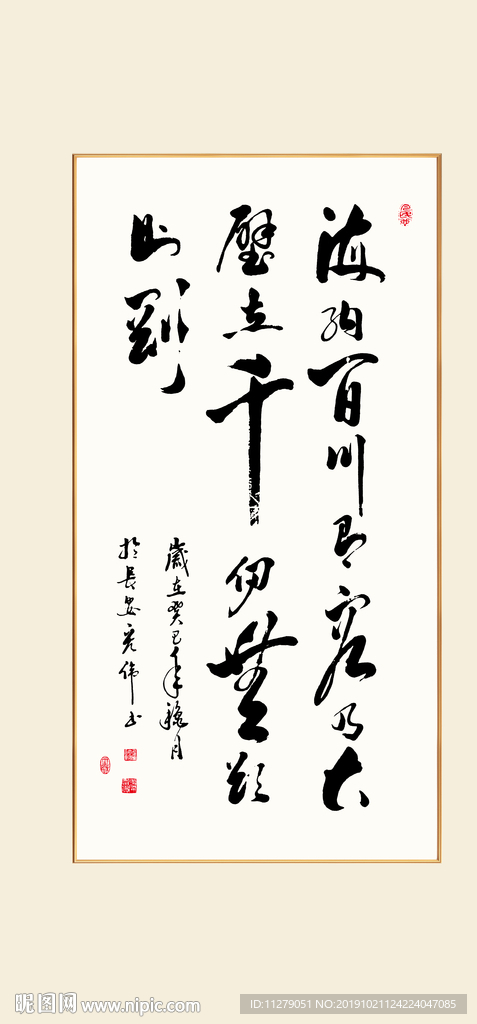 海納百川有容乃大
壁立千仞無欲
則剛
歲在癸巳年月
於長安偉书
昵图网 www.nipic.com
ID:11279051 NO:20191021124224047085